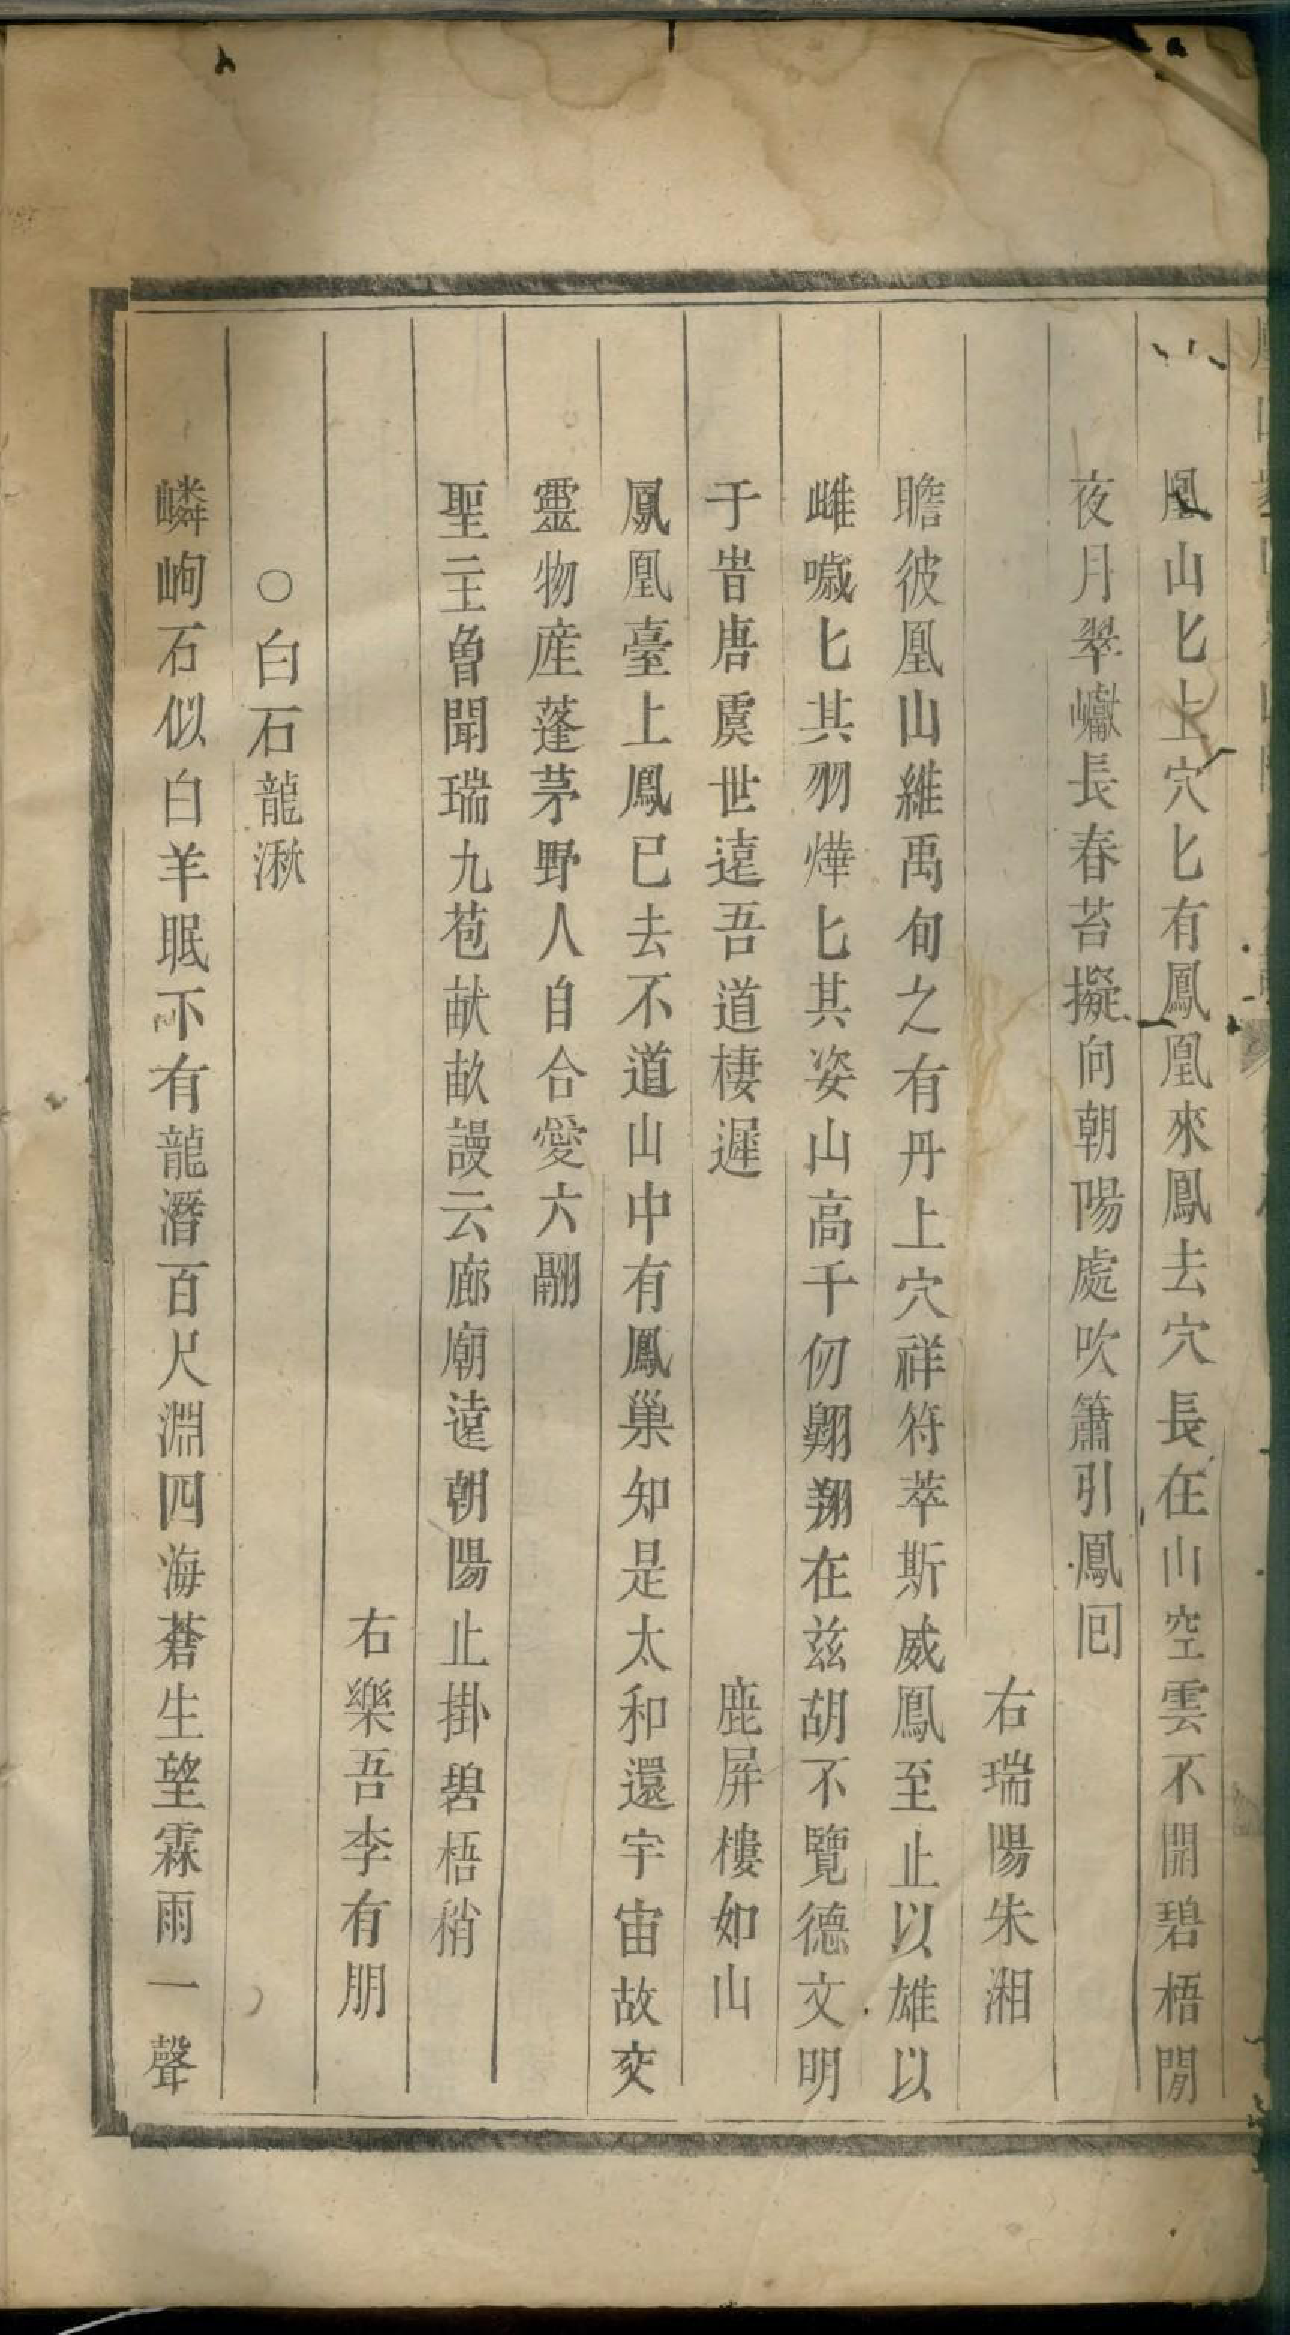 凰山匕上穴匕有鳳凰來鳳去穴長在山空雲不開碧梧閒
夜月翠巘長春苔擬向朝陽處吹簫引鳳囘
右瑞陽朱湘
瞻彼凰山維禹甸之有丹上穴祥符萃斯威鳳至止以雄以
雌噦匕其羽燁匕其姿山高千仞翺翔在兹胡不覽德文明
于昔唐虞世遠吾道棲遲
鹿屏樓如山
鳳凰臺上鳳已去不道山中有鳳巢知是太和還宇宙故交
靈物産蓬茅野人自合愛六翮
聖主曾聞瑞九苞献畝謾云廊廟遠朝陽止掛碧梧稍
右樂吾李有朋
○白石龍湫
嶙峋石似白羊眠下有龍潛百尺淵四海蒼生望霖雨一聲